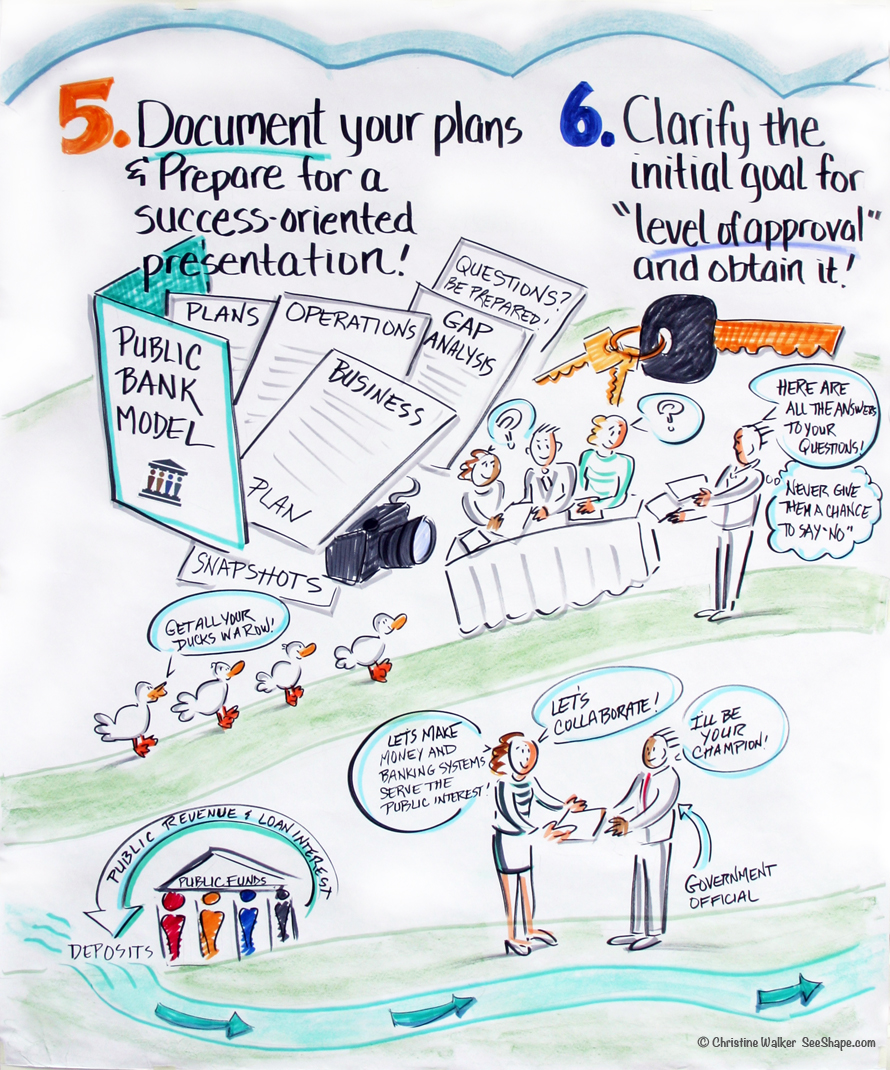 5. Document your plans
& Prepare for a
success-oriented
presentation!
6. Clarify the
initial goal for
"level of approval"
and obtain it!
PUBLIC
BANK
MODEL
PLANS
OPERATIONS
QUESTIONS?
BE PREPARED!
GAP
ANALYSIS
BUSINESS
PLAN
SNAPSHOTS
?
?
HERE ARE
ALL THE ANSWERS
TO YOUR
QUESTIONS!
NEVER GIVE
THEM A CHANCE
TO SAY "NO"
GET ALL YOUR
DUCKS IN A ROW!
LET'S MAKE
MONEY AND
BANKING SYSTEMS
SERVE THE
PUBLIC INTEREST!
LET'S
COLLABORATE!
I'LL BE
YOUR
CHAMPION!
GOVERNMENT
OFFICIAL
PUBLIC REVENUE & LOAN INTEREST
PUBLIC FUNDS
DEPOSITS
© Christine Walker SeeShape.com